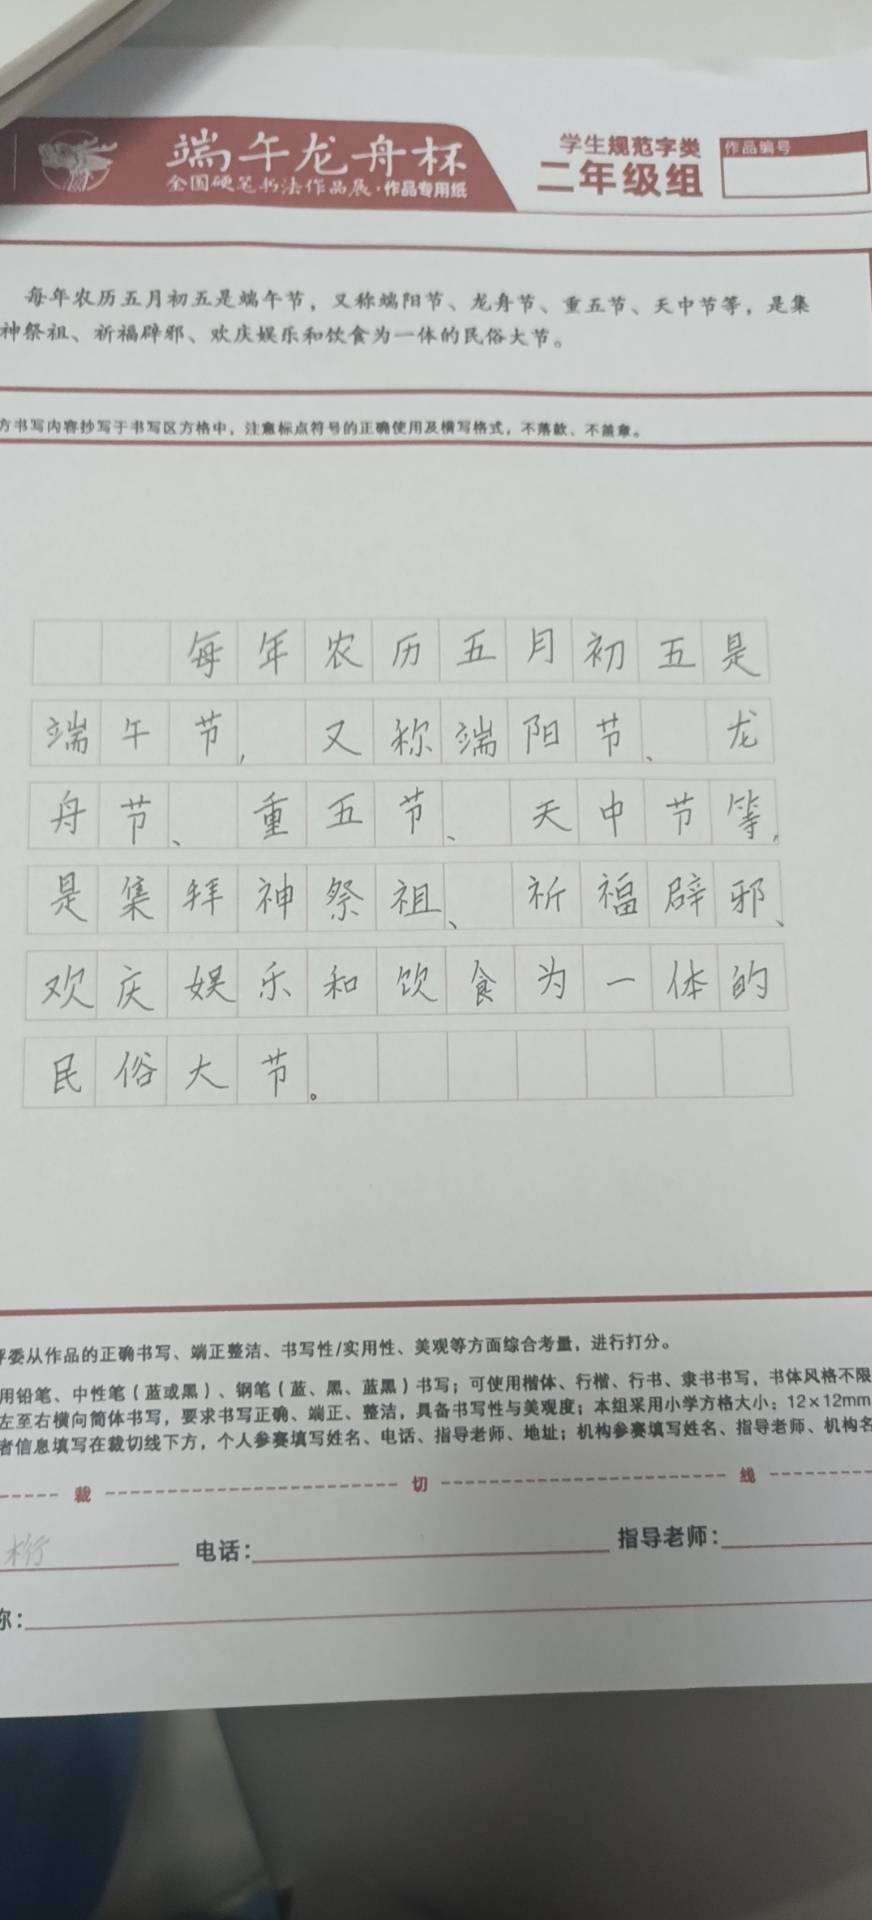 端午龙舟杯
全国硬笔书法作品展·作品专用纸
学生规范字类
二年级组
作品编号
每年农历五月初五是端午节，又称端阳节、龙舟节、重五节、天中节等，是集
神祭祖、祈福辟邪、欢庆娱乐和饮食为一体的民俗大节。
方书写内容抄写于书写区方格中，注意标点符号的正确使用及横写格式，不落款、不盖章。
每年农历五月初五是
端午节，又称端阳节、龙
舟节、重五节、天中节等，
是集拜神祭祖、祈福辟邪、
欢庆娱乐和饮食为一体的
民俗大节。
评委从作品的正确书写、端正整洁、书写性/实用性、美观等方面综合考量，进行打分。
用铅笔、中性笔（蓝或黑）、钢笔（蓝、黑、蓝黑）书写；可使用楷体、行楷、行书、隶书书写，书体风格不限
左至右横向简体书写，要求书写正确、端正、整洁，具备书写性与美观度；本组采用小学方格大小：12×12mm
者信息填写在裁切线下方，个人参赛填写姓名、电话、指导老师、地址；机构参赛填写姓名、指导老师、机构名
裁 切 线
电话： 指导老师：
称：